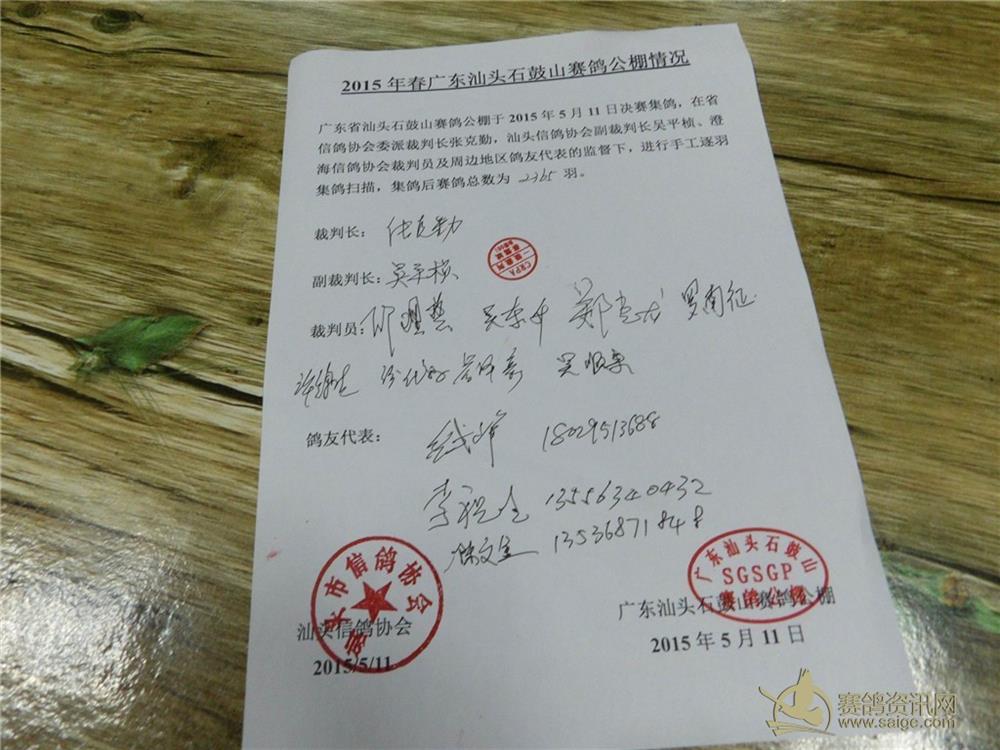 2015年春广东汕头石鼓山赛鸽公棚情况
广东省汕头石鼓山赛鸽公棚于2015年5月11日决赛集鸽,在省
信鸽协会委派裁判长张克勤,汕头信鸽协会副裁判长吴平桢、澄
海信鸽协会裁判员及周边地区鸽友代表的监督下,进行手工逐羽
集鸽扫描,集鸽后赛鸽总数为 2365 羽。
裁判长: 张克勤
副裁判长: 吴平桢
CRPA
裁判员:
鸽友代表: 18029513688
13556340432
13536871848
汕头市信鸽协会
汕头信鸽协会
2015/5/11
广东汕头石鼓山
SGSGP
赛鸽公棚
广东汕头石鼓山赛鸽公棚
2015年5月11日
赛鸽资讯网
www.saige.com